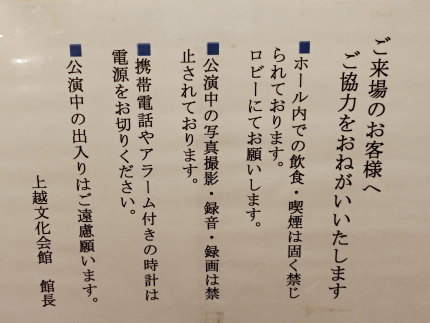 ご来場のお客様へ
ご協力をおねがいいたします
■ホール内での飲食・喫煙は固く禁じ
られております。
ロビーにてお願いします。
■公演中の写真撮影・録音・録画は禁
止されております。
■携帯電話やアラーム付きの時計は
電源をお切りください。
■公演中の出入りはご遠慮願います。
上越文化会館 館長